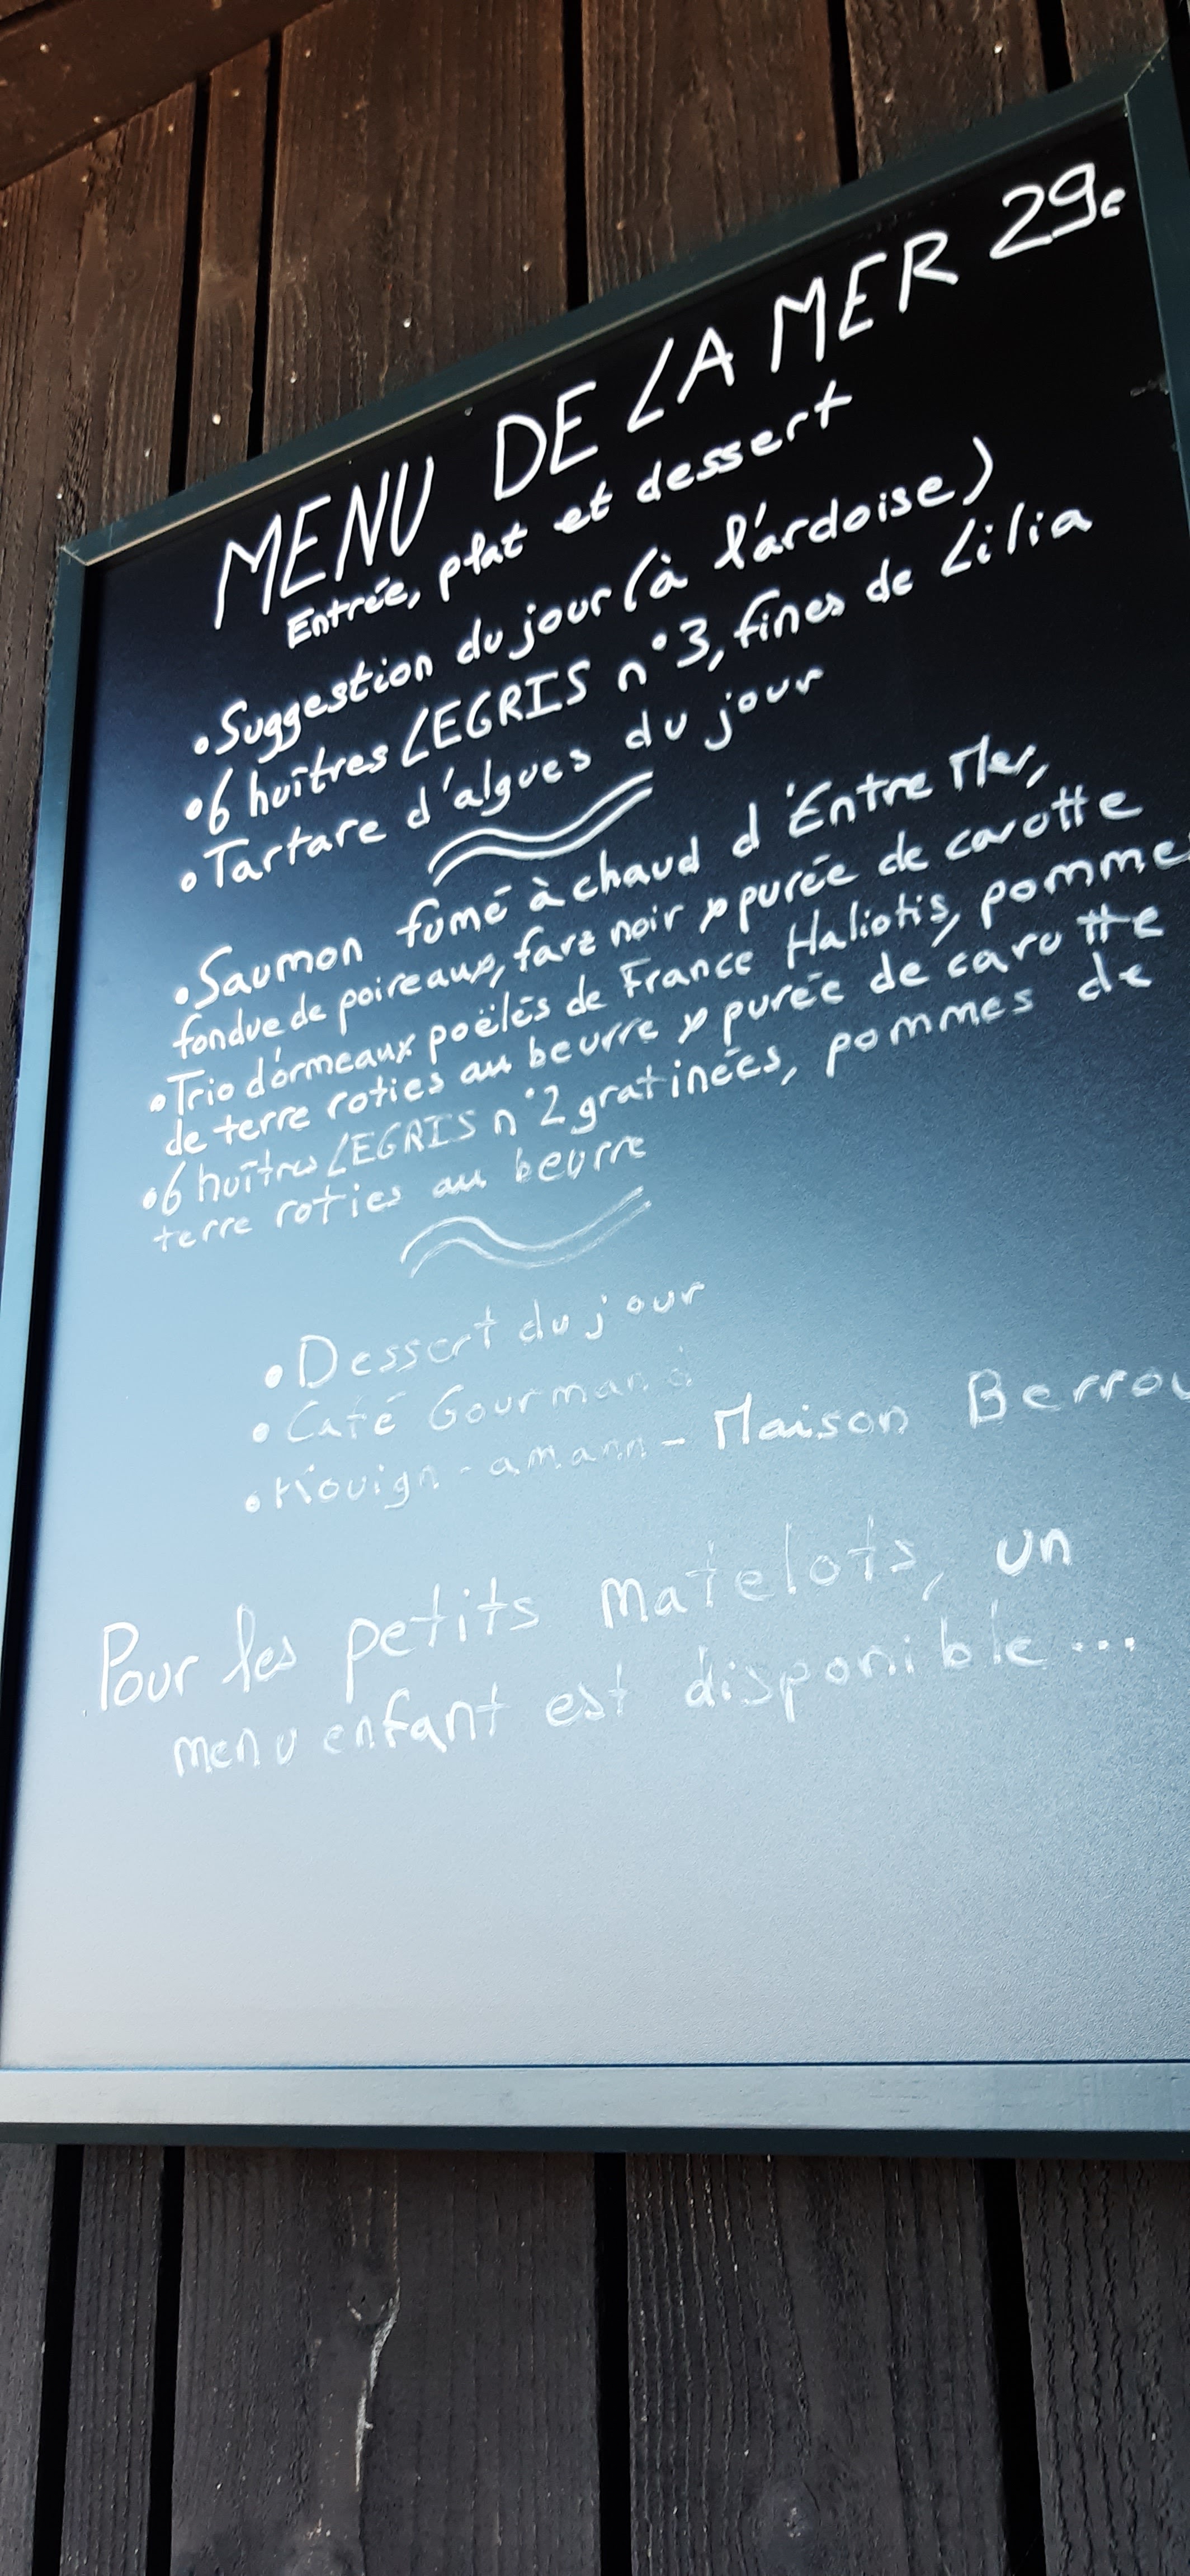 MENU DE LA MER 29€
Entrée, plat et dessert
• Suggestion du jour (à l'ardoise)
• 6 huîtres LEGRIS n°3, fines de Lilia
• Tartare d'algues du jour
• Saumon fumé à chaud d'Entre Mer,
fondue de poireaux, farz noir & purée de carotte
• Trio d'ormeaux poëlés de France Haliotis, pommes
de terre roties au beurre & purée de carotte
• 6 huîtres LEGRIS n°2 gratinées, pommes de
terre roties au beurre
• Dessert du jour
• Café Gourmand
• Kouign-amann - Maison Berrou
Pour les petits matelots, un
menu enfant est disponible...